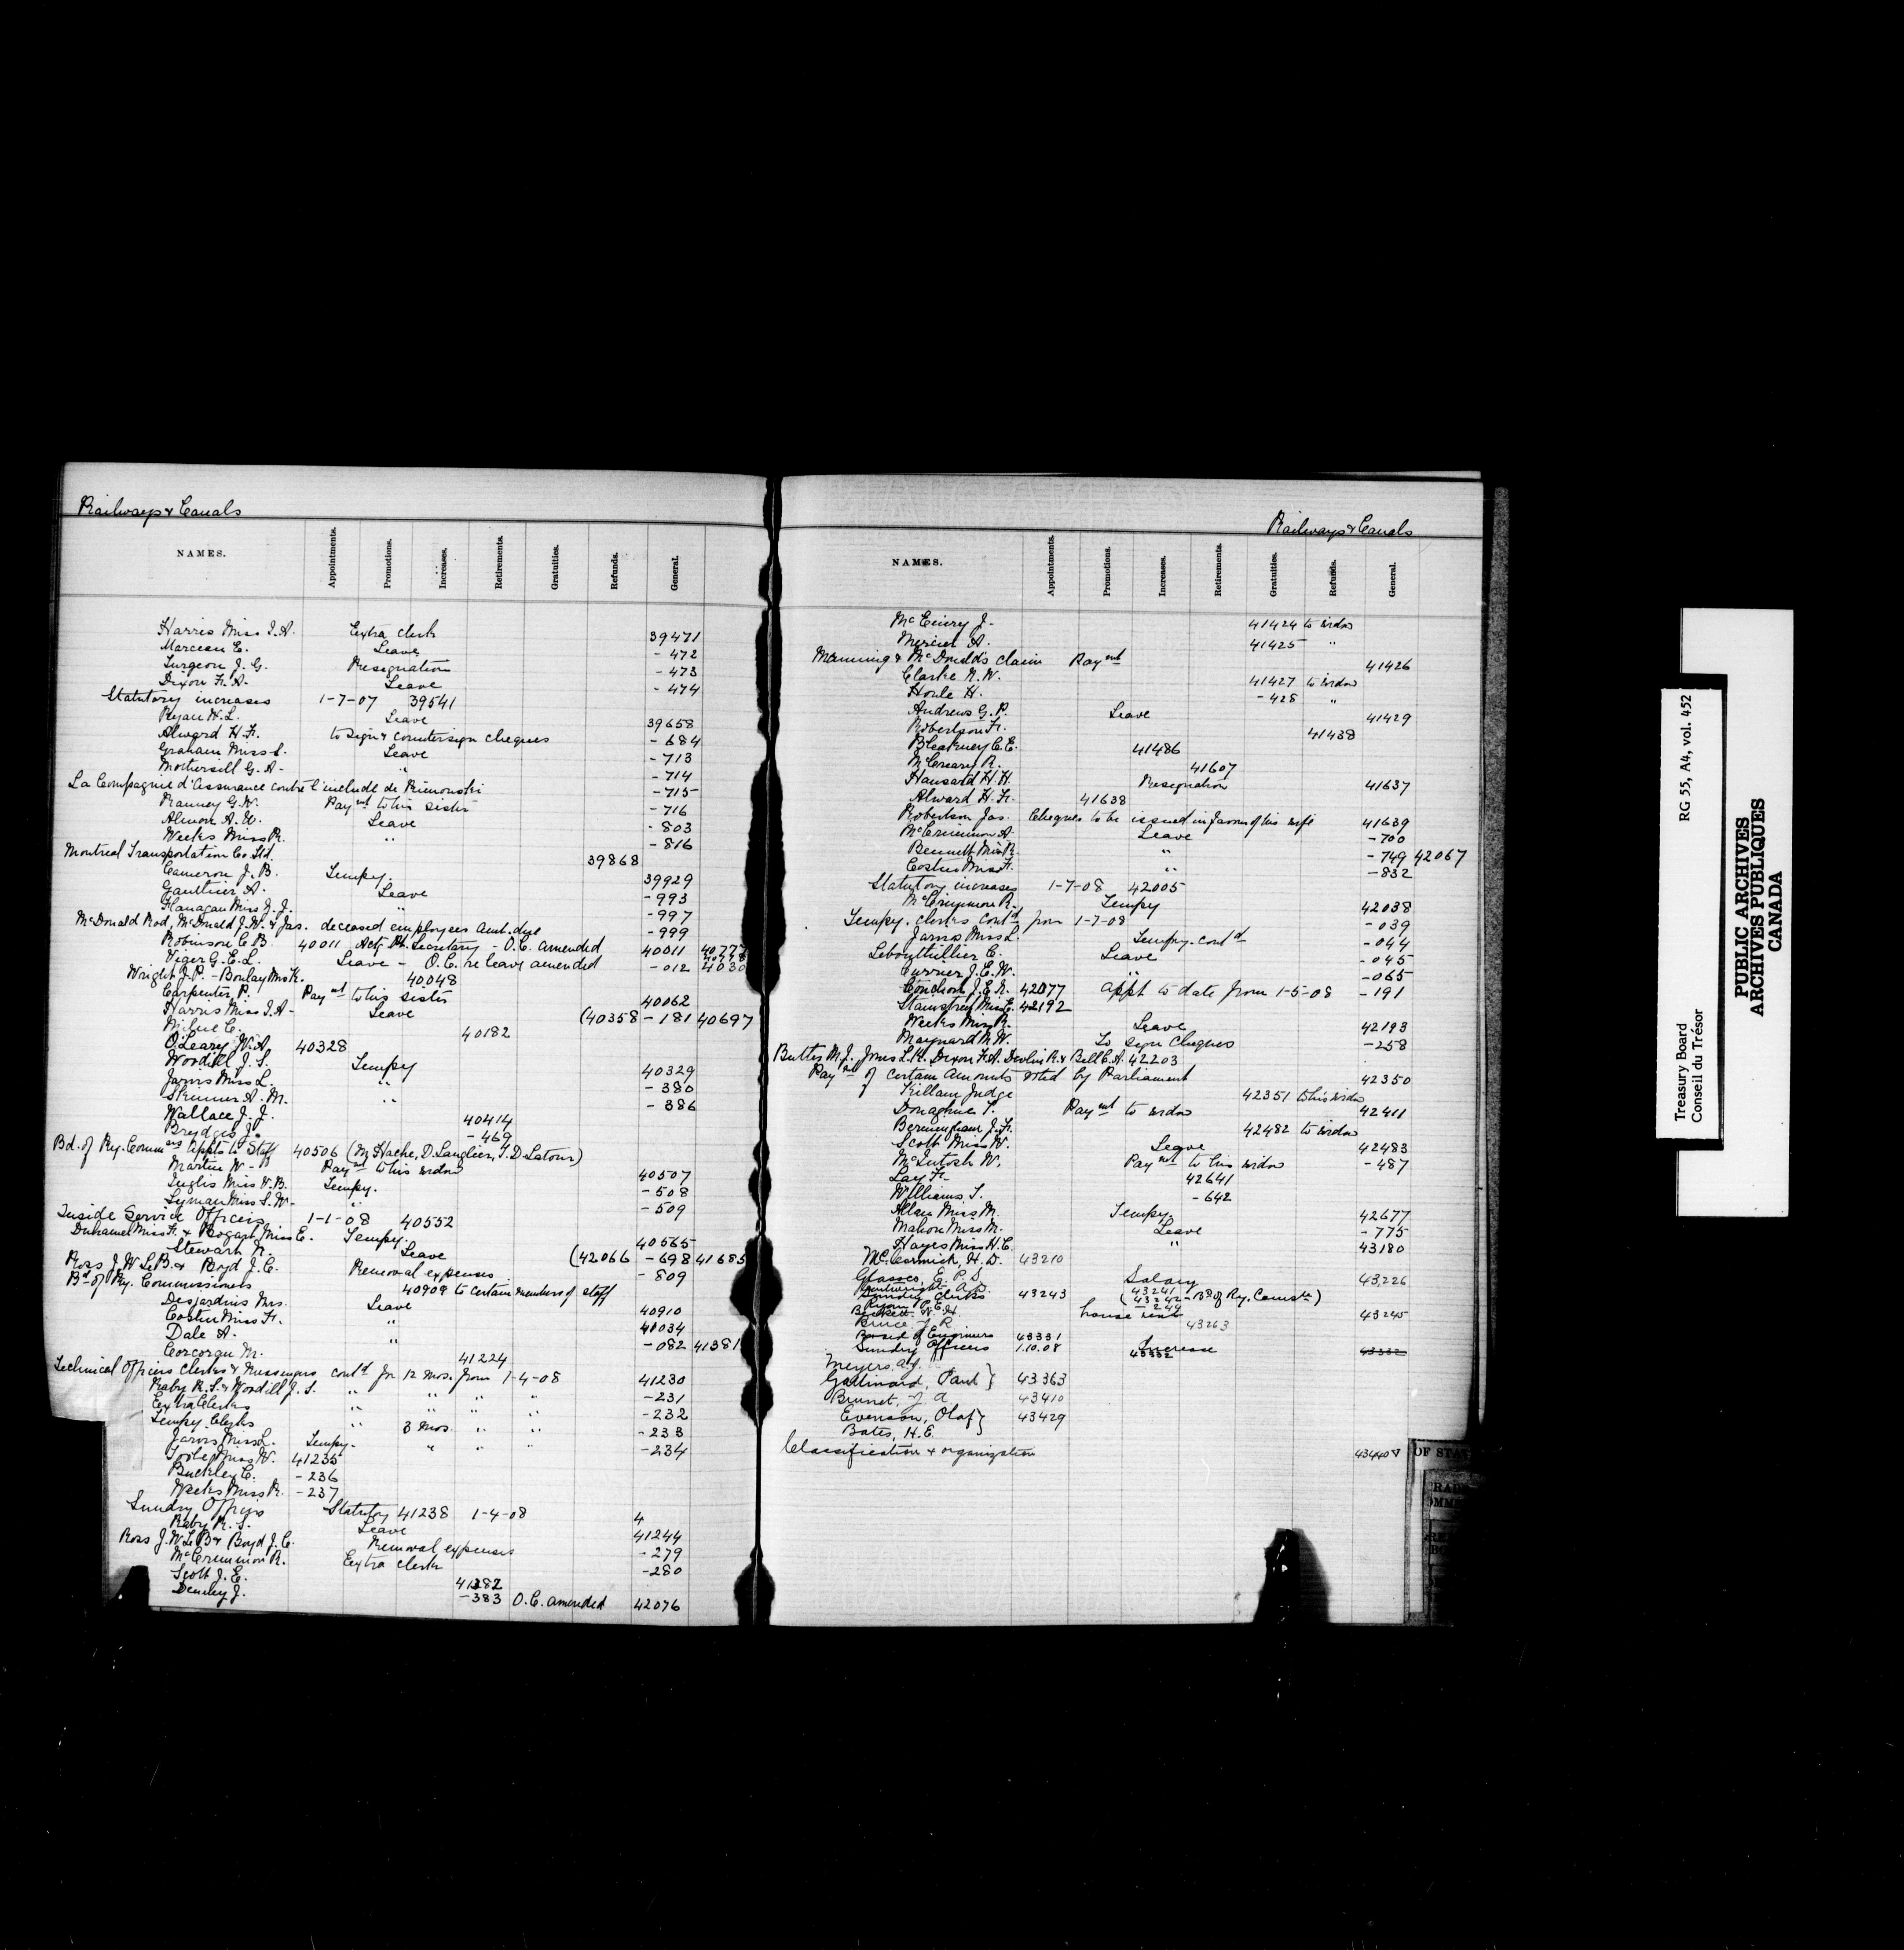 Railways & Canals
NAMES. Appointments. Promotions. Increases. Retirements. Gratuities. Refunds. General.
Harris Miss I.A. Extra clerk 39471
Marceau E. Leave - 472
Surgeon J. G. Resignation - 473
Dixon F. A. Leave - 474
Statutory increases 1-7-07 39541
Ryan W. L. Leave 39658
Alward H. F. to sign & countersign cheques - 684
Graham Miss L. Leave - 713
Mothersill G. A. " - 714
La Compagnie d'assurance contre l'incendie de Rimouski - 715
Ranney G. W. Paymt to his sister - 716
Almon A. W. Leave - 803
Weeks Miss R. " - 816
Montreal Transportation Co. Ltd. 39868
Cameron J. B. Tempy. 39929
Gauthier A. Leave - 993
Flanagan Miss J. J. " - 997
McDonald Rod, McDonald J. W. & Jas. deceased employees amt. due - 999
Robinson C. B. 40011 Actg Pte. Secretary - O.C. amended 40011 40777
Viger G. E. L. Leave - O.C. re leave amended - 012 4030
Wright J. P. - Boulay Miss K. 40048
Carpenter P. Paymt to his sister 40062
Harris Miss I. A. Leave (40358 - 181 40697
Milne C. 40182
O'Leary W. A. 40328
Woodill J. S. Tempy 40329
Jarvis Miss L. " - 380
Skinner A. M. " - 386
Wallace J. J. 40414
Brydges J. - 469
Bd. of Ry. Commrs appts to Staff 40506 (M. Hache, D. Langlier, T. D. Latour)
Martin W. Paymt to his widow 40507
Inglis Miss V. B. Tempy. - 508
Lyman Miss S. W. " - 509
Inside Service Officers 1-1-08 40552
Duhamel Miss F. & Bogart Miss E. Tempy. 40565
Stewart R. Leave (42066 - 698 41685
Ross J. W. Le B. & Boyd J. C. Removal expenses - 809
Bd of Ry. Commissioners 40909 to certain members of staff
Desjardins Mrs. Leave 40910
Costin Miss F. " 41034
Dale A. " - 082 41381
Corcoran M. 41224
Technical Officers Clerks & Messengers contd for 12 mos. from 1-4-08 41230
Raby R. S. & Woodill J. S. " " " " - 231
Extra Clerks " " " " - 232
Tempy. Clerks " 3 mos. " " - 233
Jarvis Miss L. Tempy. " " " - 234
Toole Miss W. 41235
Buckley C. - 236
Weeks Miss R. - 237
Sundry Officers Statutory 41238 1-4-08
Raby R. S. Leave 41244
Ross J. W. Le B. & Boyd J. C. Removal expenses - 279
McCrimmon R. Extra clerk - 280
Scott J. E. 41382
Denney J. - 383 O.C. amended 42076
Railways & Canals
NAMES. Appointments. Promotions. Increases. Retirements. Gratuities. Refunds. General.
McEniry J. 41424 to widow
Mercier A. 41425 "
Manning & McDonald's claim Paymt 41426
Clarke N. W. 41427 to widow
Houle H. - 428 "
Andrews G. P. Leave 41429
Robertson F. 41438
Bleakney C. E. 41486
McCreary R. 41607
Hansard H. H. Resignation 41637
Alward H. F. 41638
Robertson Jas. Cheques to be issued in favour of his wife 41639
McCrimmon A. Leave - 700
Bennett Miss R. " - 749 42067
Costin Miss F. " - 832
Statutory increases 1-7-08 42005
McCrimmon R. Tempy 42038
Tempy. clerks contd from 1-7-08 - 039
Jarvis Miss L. Tempy. contd - 044
Lebouthillier C. Leave - 045
Currier J. E. W. " - 065
Couchon J. E. R. 42077 appt to date from 1-5-08 - 191
Stainstreet Miss E. 42192
Weeks Miss R. Leave 42193
Maynard M. W. To sign Cheques - 258
Butler M. J. Jones L. K. Dixon F. A. Devlin R. & Bell C. A. 42203
Paymt of certain amounts voted by Parliament 42350
Killam Judge 42351 to his widow
Donaghue T. Paymt to widow 42411
Bermingham J. F. 42482 to widow
Scott Miss W. Leave 42483
McIntosh W. Paymt to his widow - 487
Lay F. 42641
Williams T. - 642
Allan Miss M. Tempy. 42677
Mahon Miss M. Leave - 775
Hayes Miss H. C. " 43180
McCormick, H. D. 43210
Glassco, G. P. S. Salary 43,226
Sundry Clerks 43243 (43241 43242 - Bd of Ry. Comsrs) - 244
house rent 43245
Bruce, J. R. 43263
Board of Engineers 43331
Sundry Officers 1.10.08 Increase 43332 43332
Meyers. A. J.
Galtinard, Paul } 43363
Brunet, J. A 43410
Evenson, Olaf } 43429
Bates, H. E.
Classification & organization 43440
OF STAT
Treasury Board RG 55, A4, vol. 452
Conseil du Trésor
PUBLIC ARCHIVES
ARCHIVES PUBLIQUES
CANADA